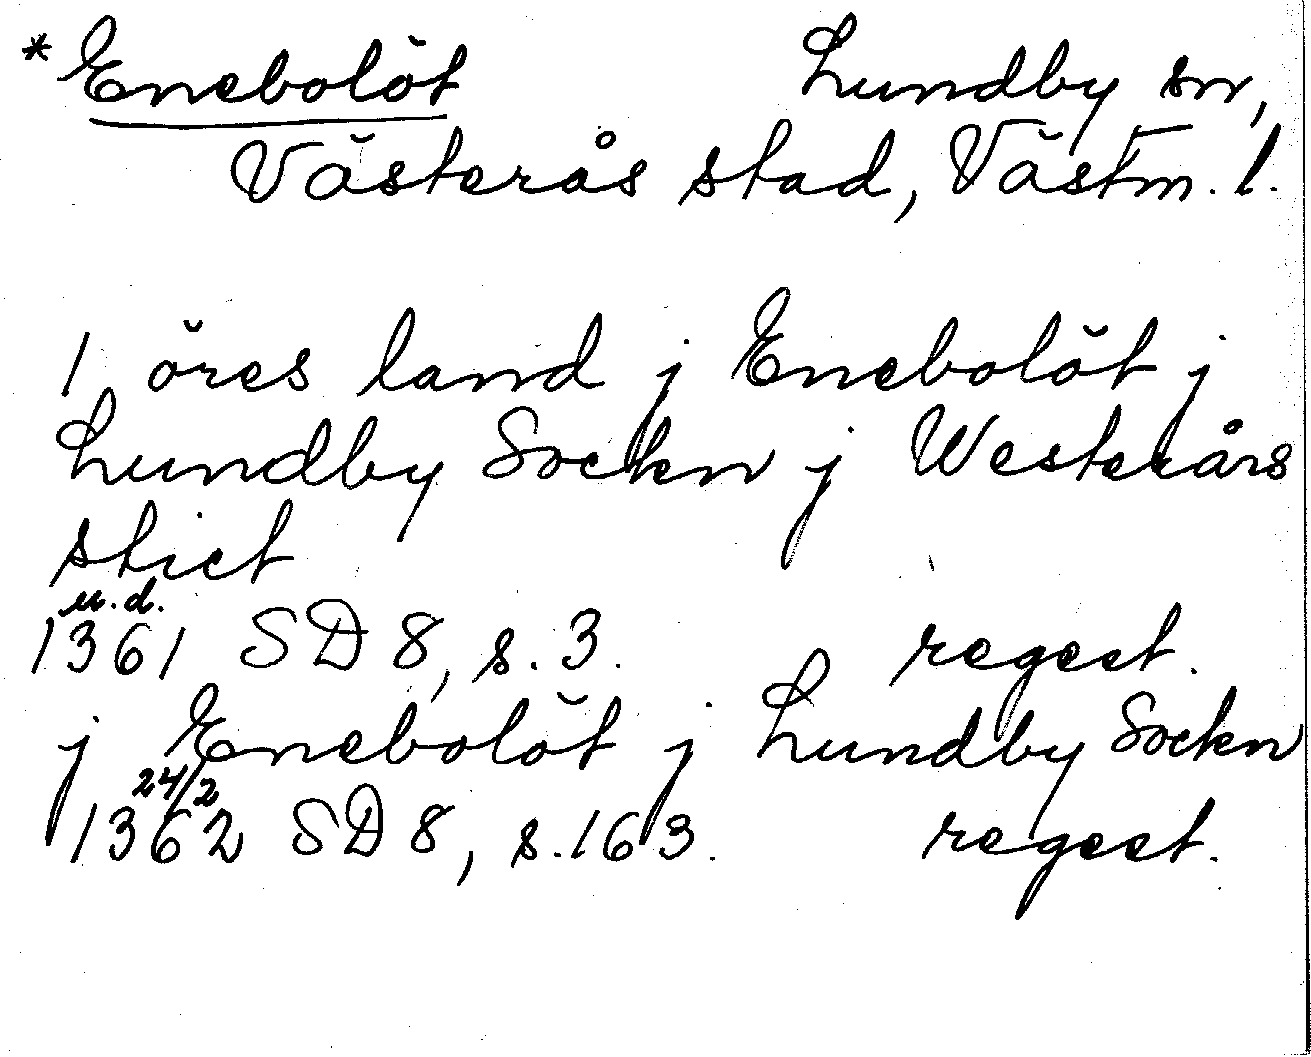 * Enebolöt Lundby sn,
Västerås stad, Västm. l.
1 öres land j Enebolöt j
Lundby Sockn j Westerårs
stict
u.d.
1361 SD 8, s. 3. regest.
j Enebolöt j Lundby Sockn
24/2
1362 SD 8, s. 163. regest.